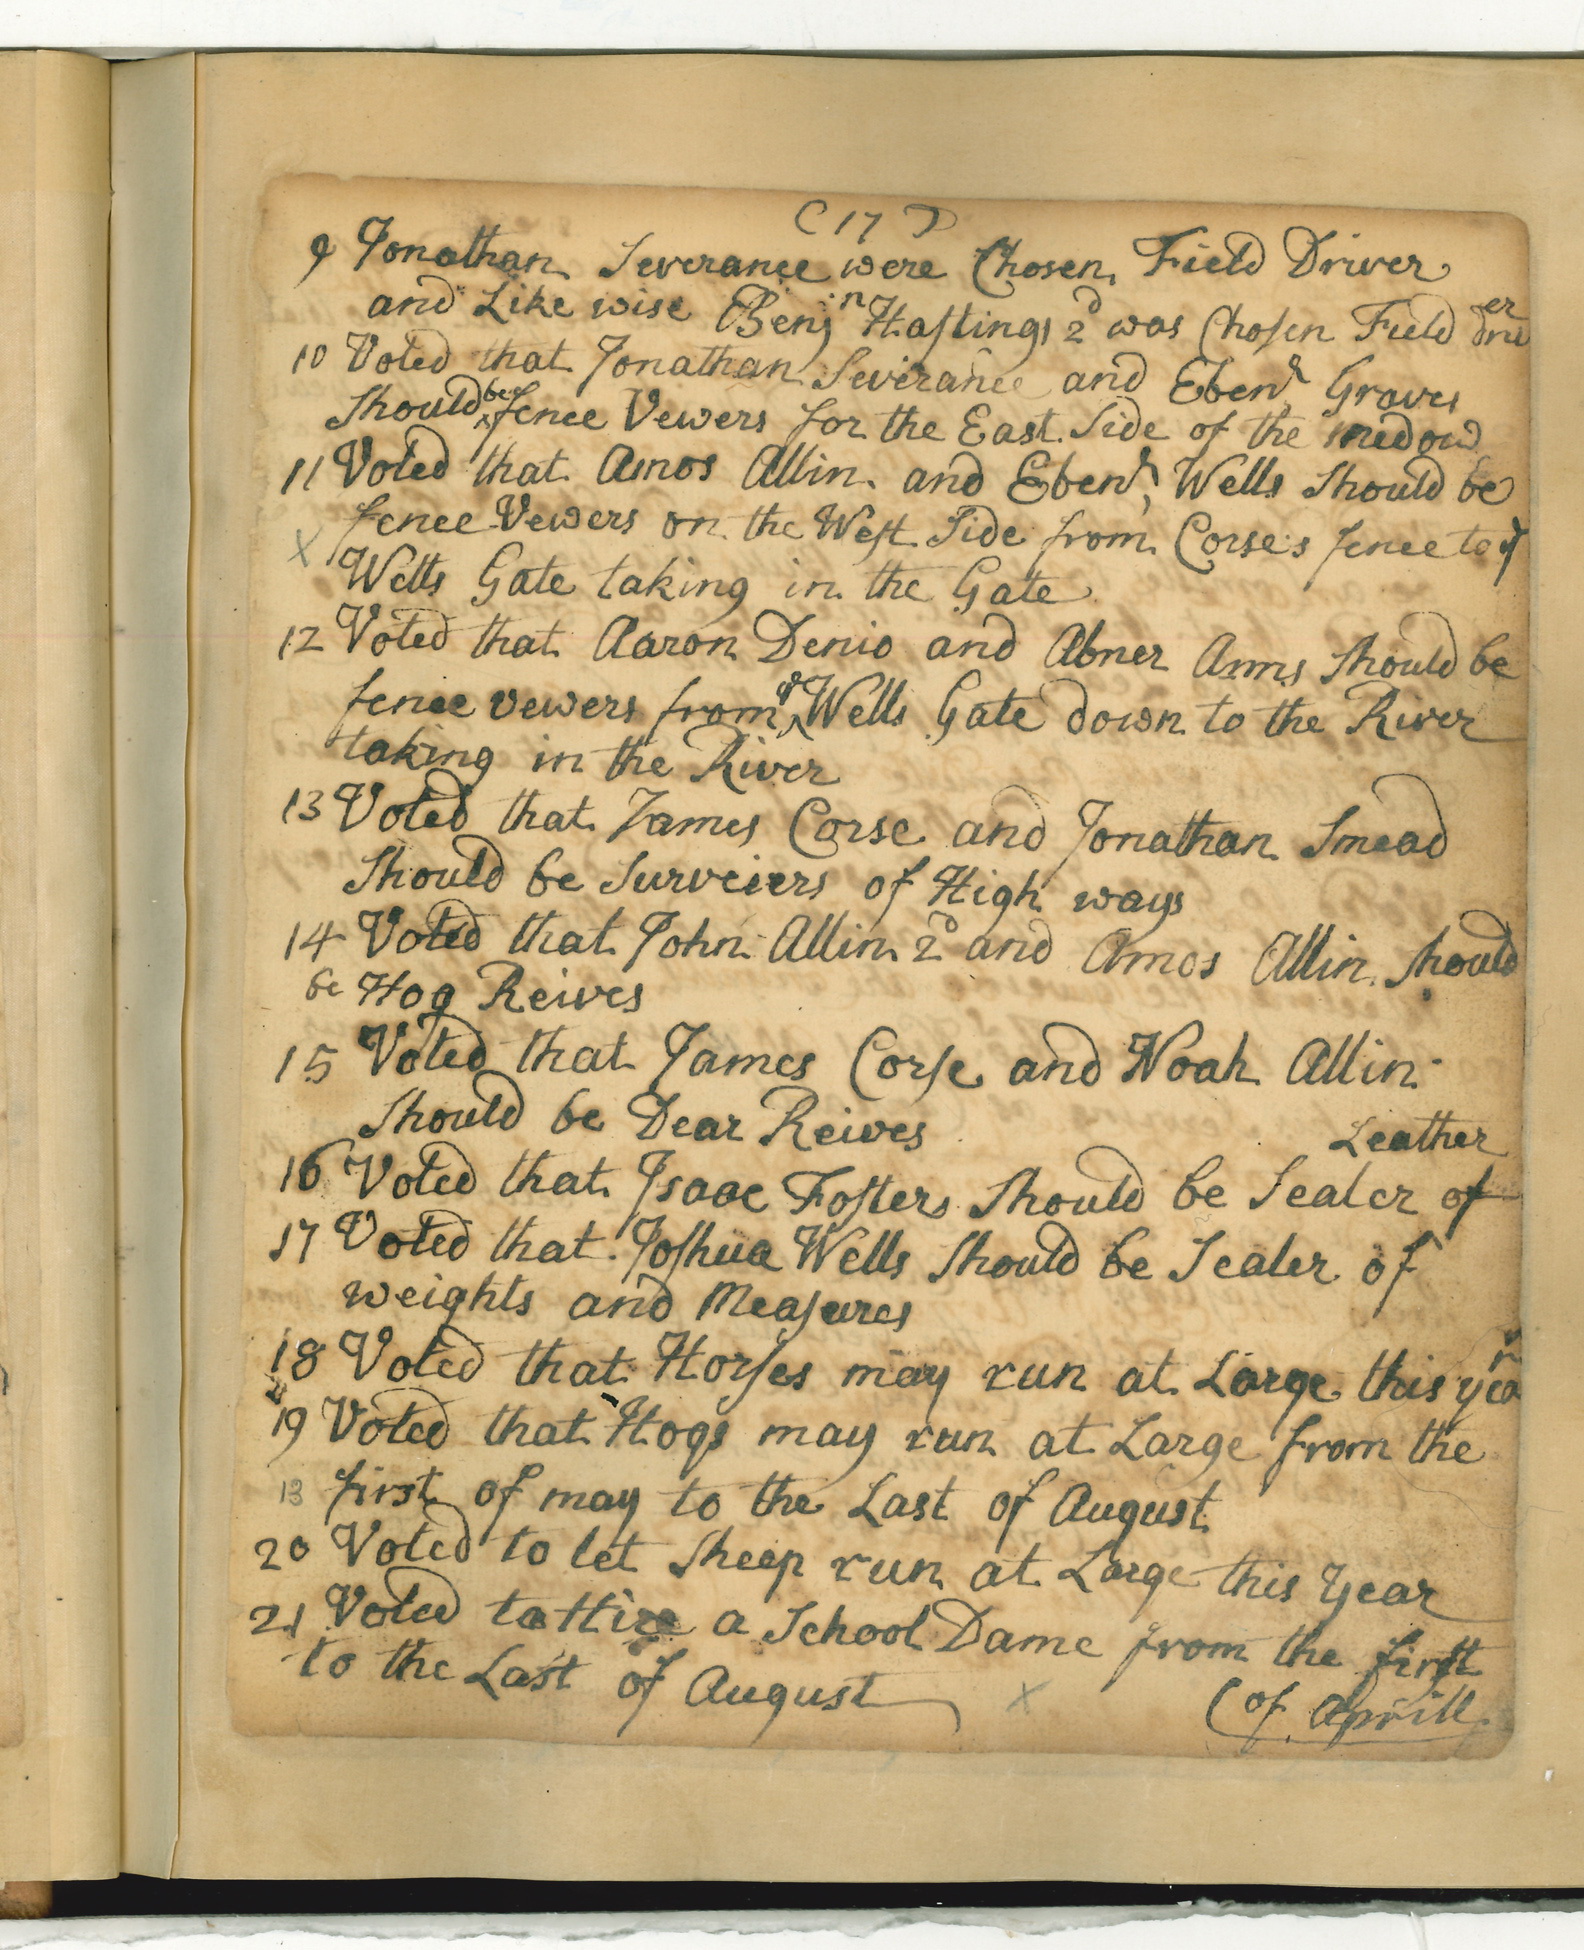 (17)
9 Jonathan Severance were Chosen Field Driver
and Like wise Benjn Hastings 2d was Chosen Field driver
10 Voted that Jonathan Severance and Ebenr Graves
Should be fence Vewers for the East Side of the medow
11 Voted that Amos Allin and Ebenr Wells Should be
fence Vewers on the West Side from Corse's fence to ye
Wells Gate taking in the Gate
12 Voted that Aaron Denio and Abner Arms Should be
fence vewers from ye Wells Gate down to the River
taking in the River
13 Voted that James Corse and Jonathan Smead
Should be Surveiers of High ways
14 Voted that John Allin 2d and Amos Allin Should
be Hog Reives
15 Voted that James Corse and Noah Allin
Should be Dear Reives
16 Voted that Isaac Fosters Should be Sealer of Leather
17 Voted that Joshua Wells Should be Sealer of
weights and Measures
18 Voted that Horses may run at Large this year
19 Voted that Hogs may run at Large from the
13 first of may to the Last of August
20 Voted to let Sheep run at Large this Year
21 Voted to Hire a School Dame from the first
to the Last of August (of Aprill